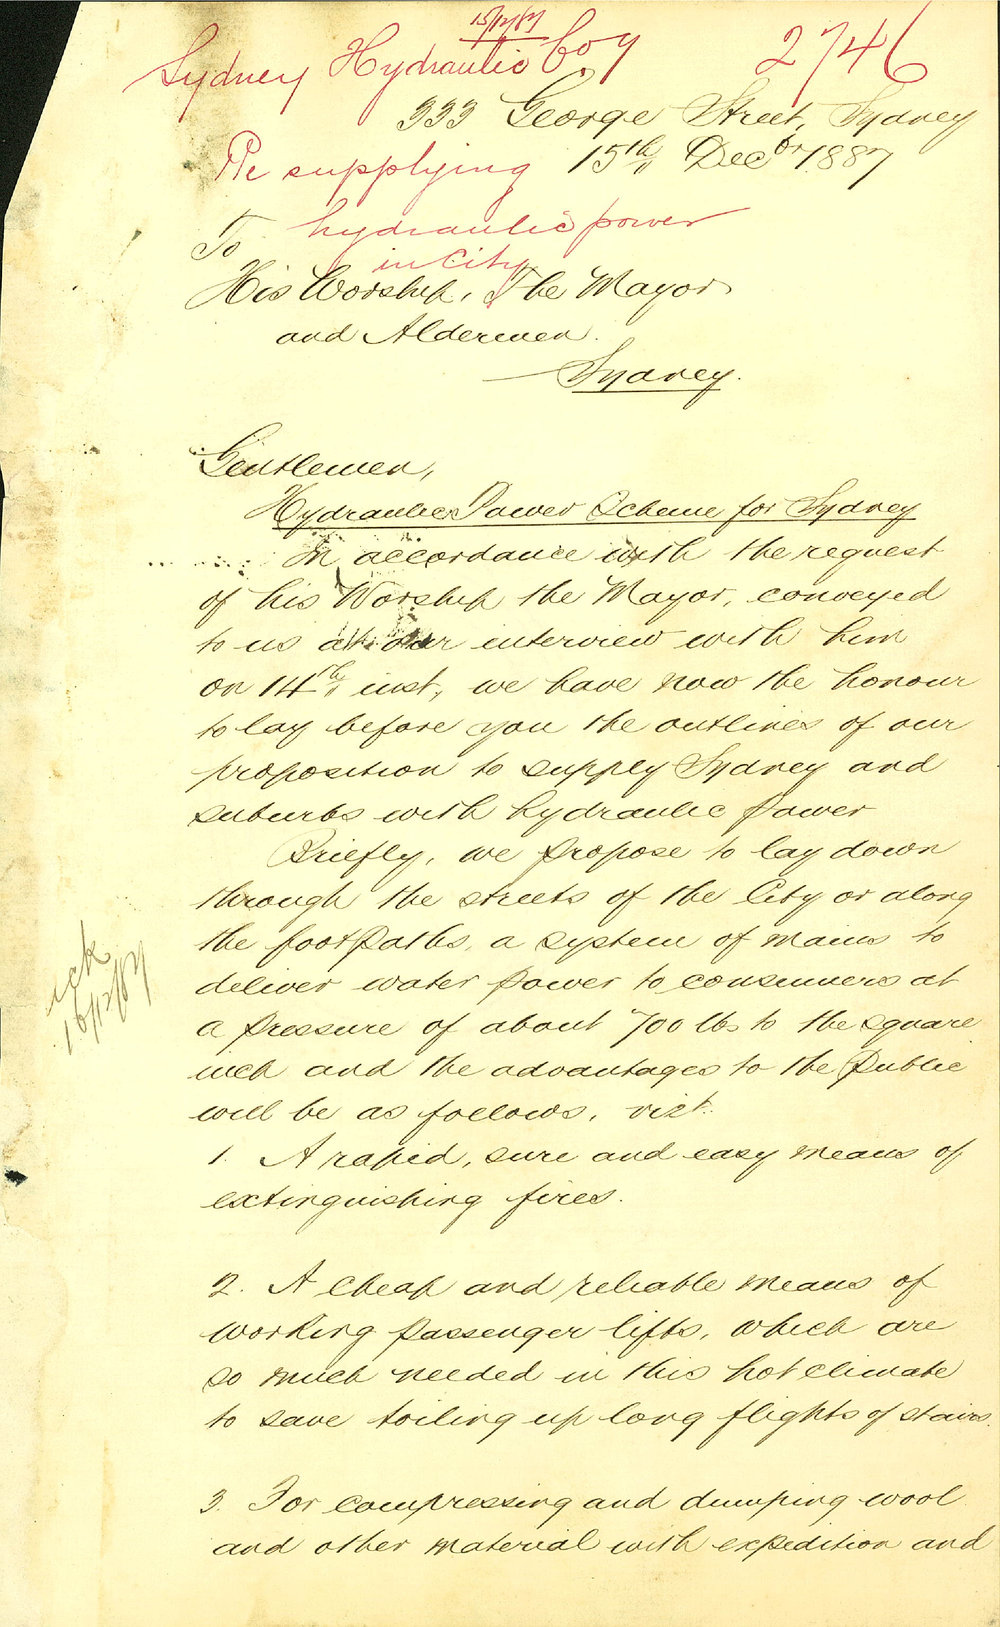 15/12/87
Sydney Hydraulic Coy 2746
333 George Street, Sydney
Re supplying 15th Decbr 1887
hydraulic power
To
in City
His Worship, The Mayor
and Aldermen.
Sydney.
Gentlemen,
Hydraulic Power Scheme for Sydney
In accordance with the request
of his Worship the Mayor, conveyed
to us at our interview with him
on 14th inst, we have now the honour
to lay before you the outlines of our
proposition to supply Sydney and
suburbs with hydraulic power
Briefly, we propose to lay down
through the streets of the City or along
the footpaths, a system of mains to
deliver water power to consumers at
a pressure of about 700 lbs to the square
inch and the advantages to the public
will be as follows, vizt:
16/12/87
1. A rapid, sure and easy means of
extinguishing fires.
2. A cheap and reliable means of
working passenger lifts, which are
so much needed in this hot climate
to save toiling up long flights of stairs.
3. For compressing and dumping wool
and other material with expedition and